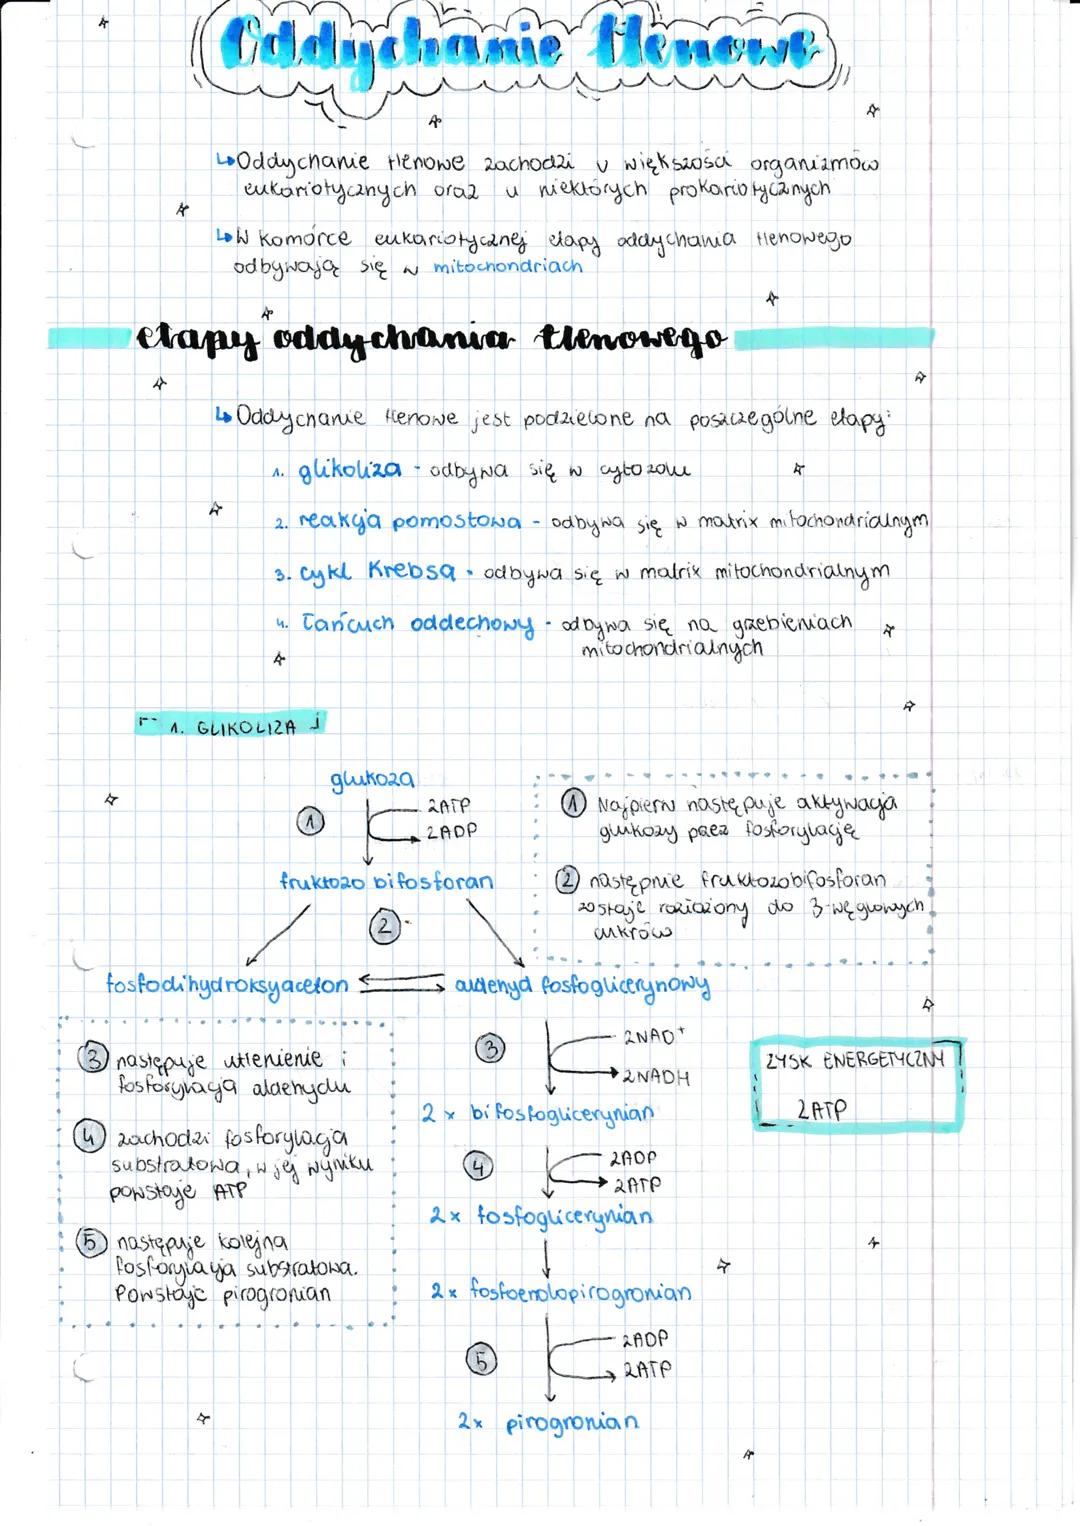 Oddychanie tlenowe
↳Oddychanie tlenowe zachodzi u większości organizmów
eukariotycznych oraz u niektórych prokariotycznych
↳W komórce eukariotycznej etapy oddychania tlenowego
odbywają się w mitochondriach
etapy oddychania tlenowego
↳Oddychanie tlenowe jest podzielone na poszczególne etapy:
1. glikoliza - odbywa się w cytozolu
2. reakcja pomostowa - odbywa się w matrix mitochondrialnym
3. cykl Krebsa - odbywa się w matrix mitochondrialnym
4. Łańcuch oddechowy - odbywa się na grzebieniach
mitochondrialnych
1. GLIKOLIZA
glukoza
1
2ATP
2ADP
fruktozo bifosforan
2
fosfodihydroksyaceton
aldehyd fosfoglicerynowy
1 Najpierw następuje aktywacja
glukozy przez fosforylację
2 następnie fruktozobifosforan
zostaje rozłożony do 3-węglowych
cukrów
3 następuje utlenienie i
fosforylacja aldehydu
4 zachodzi fosforylacja
substratowa, w jej wyniku
powstaje ATP
5 następuje kolejna
fosforylacja substratowa.
Powstaje pirogronian
3
2NAD+
2NADH
2 x bifosfoglicerynian
4
2ADP
2ATP
2x fosfoglicerynian
2x fosfoenolopirogronian
5
2ADP
2ATP
2x pirogronian
ZYSK ENERGETYCZNY
2ATP